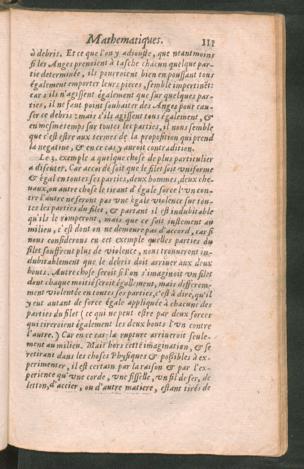 Mathematiques. 113
à debris. Et ce que l'on y adiouste, que neantmoins
si les Anges prenoient à tasche chacun quelque par-
tie determinée, ils pourroient bien en poussant tous
également emporter leurs pieces, semble impertinēt:
car s'ils n'agissent également que sur quelques par-
ties, il ne sont point souhaiter des Anges pour cau-
ser ce debris: mais s'ils agissent tous également, &
en mesme temps sur toutes les parties, il nous semble
que c'est estre aux termes de la proposition qui prend
la negatiue, & en ce cas, y auroit contradition.
Le 3. exemple a quelque chose de plus particulier
à discuter. Car accordé soit que le filet soit vniforme
& égal en toutes ses parties, deux hommes, deux che-
uaux, ou autre chose le tirant d'égale force l'vn con-
tre l'autre ne feront pas vne égale violence sur tou-
tes les parties du filet, & partant il est indubitable
qu'ils le romperont, mais que ce soit iustement au
milieu, c'est dont on ne demeure pas d'accord, car si
nous considerons en cet exemple quelles parties du
filet souffrent plus de violence, nous trouuerons in-
dubitablement que le debris doit arriuer aux deux
bouts. Autre chose seroit si l'on s'imaginoit vn filet
dont chaque moitié seroit égallement, mais differem-
ment violentée en toutes ses parties, c'est à dire, qu'il
y eut autant de force égale appliquée à chacune des
parties du filet (ce qui ne peut estre par deux forces
qui tireroient également les deux bouts l'vn contre
l'autre.) Car en ce cas la rupture arriueroit seule-
ment au milieu. Mais hors cette imagination, & se
retirant dans les choses Physiques & possibles à ex-
perimenter, il est certain par la raison & par l'ex-
perience qu'vne corde, vne fisselle, vn fil de fer, de
letton, d'accier, ou d'autre matiere, estant tirés de